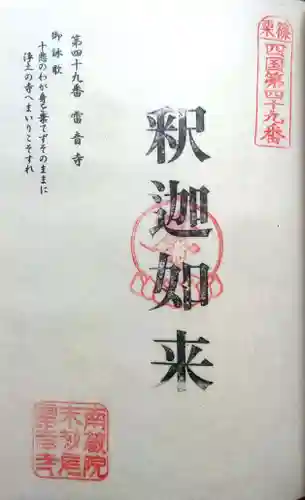 篠栗
四国第四十九番
釈迦如来
第四十九番 雷音寺
御詠歌
十悪のわが身を棄てずそのままに
浄土の寺へまいりこそすれ
南蔵院
雷音寺